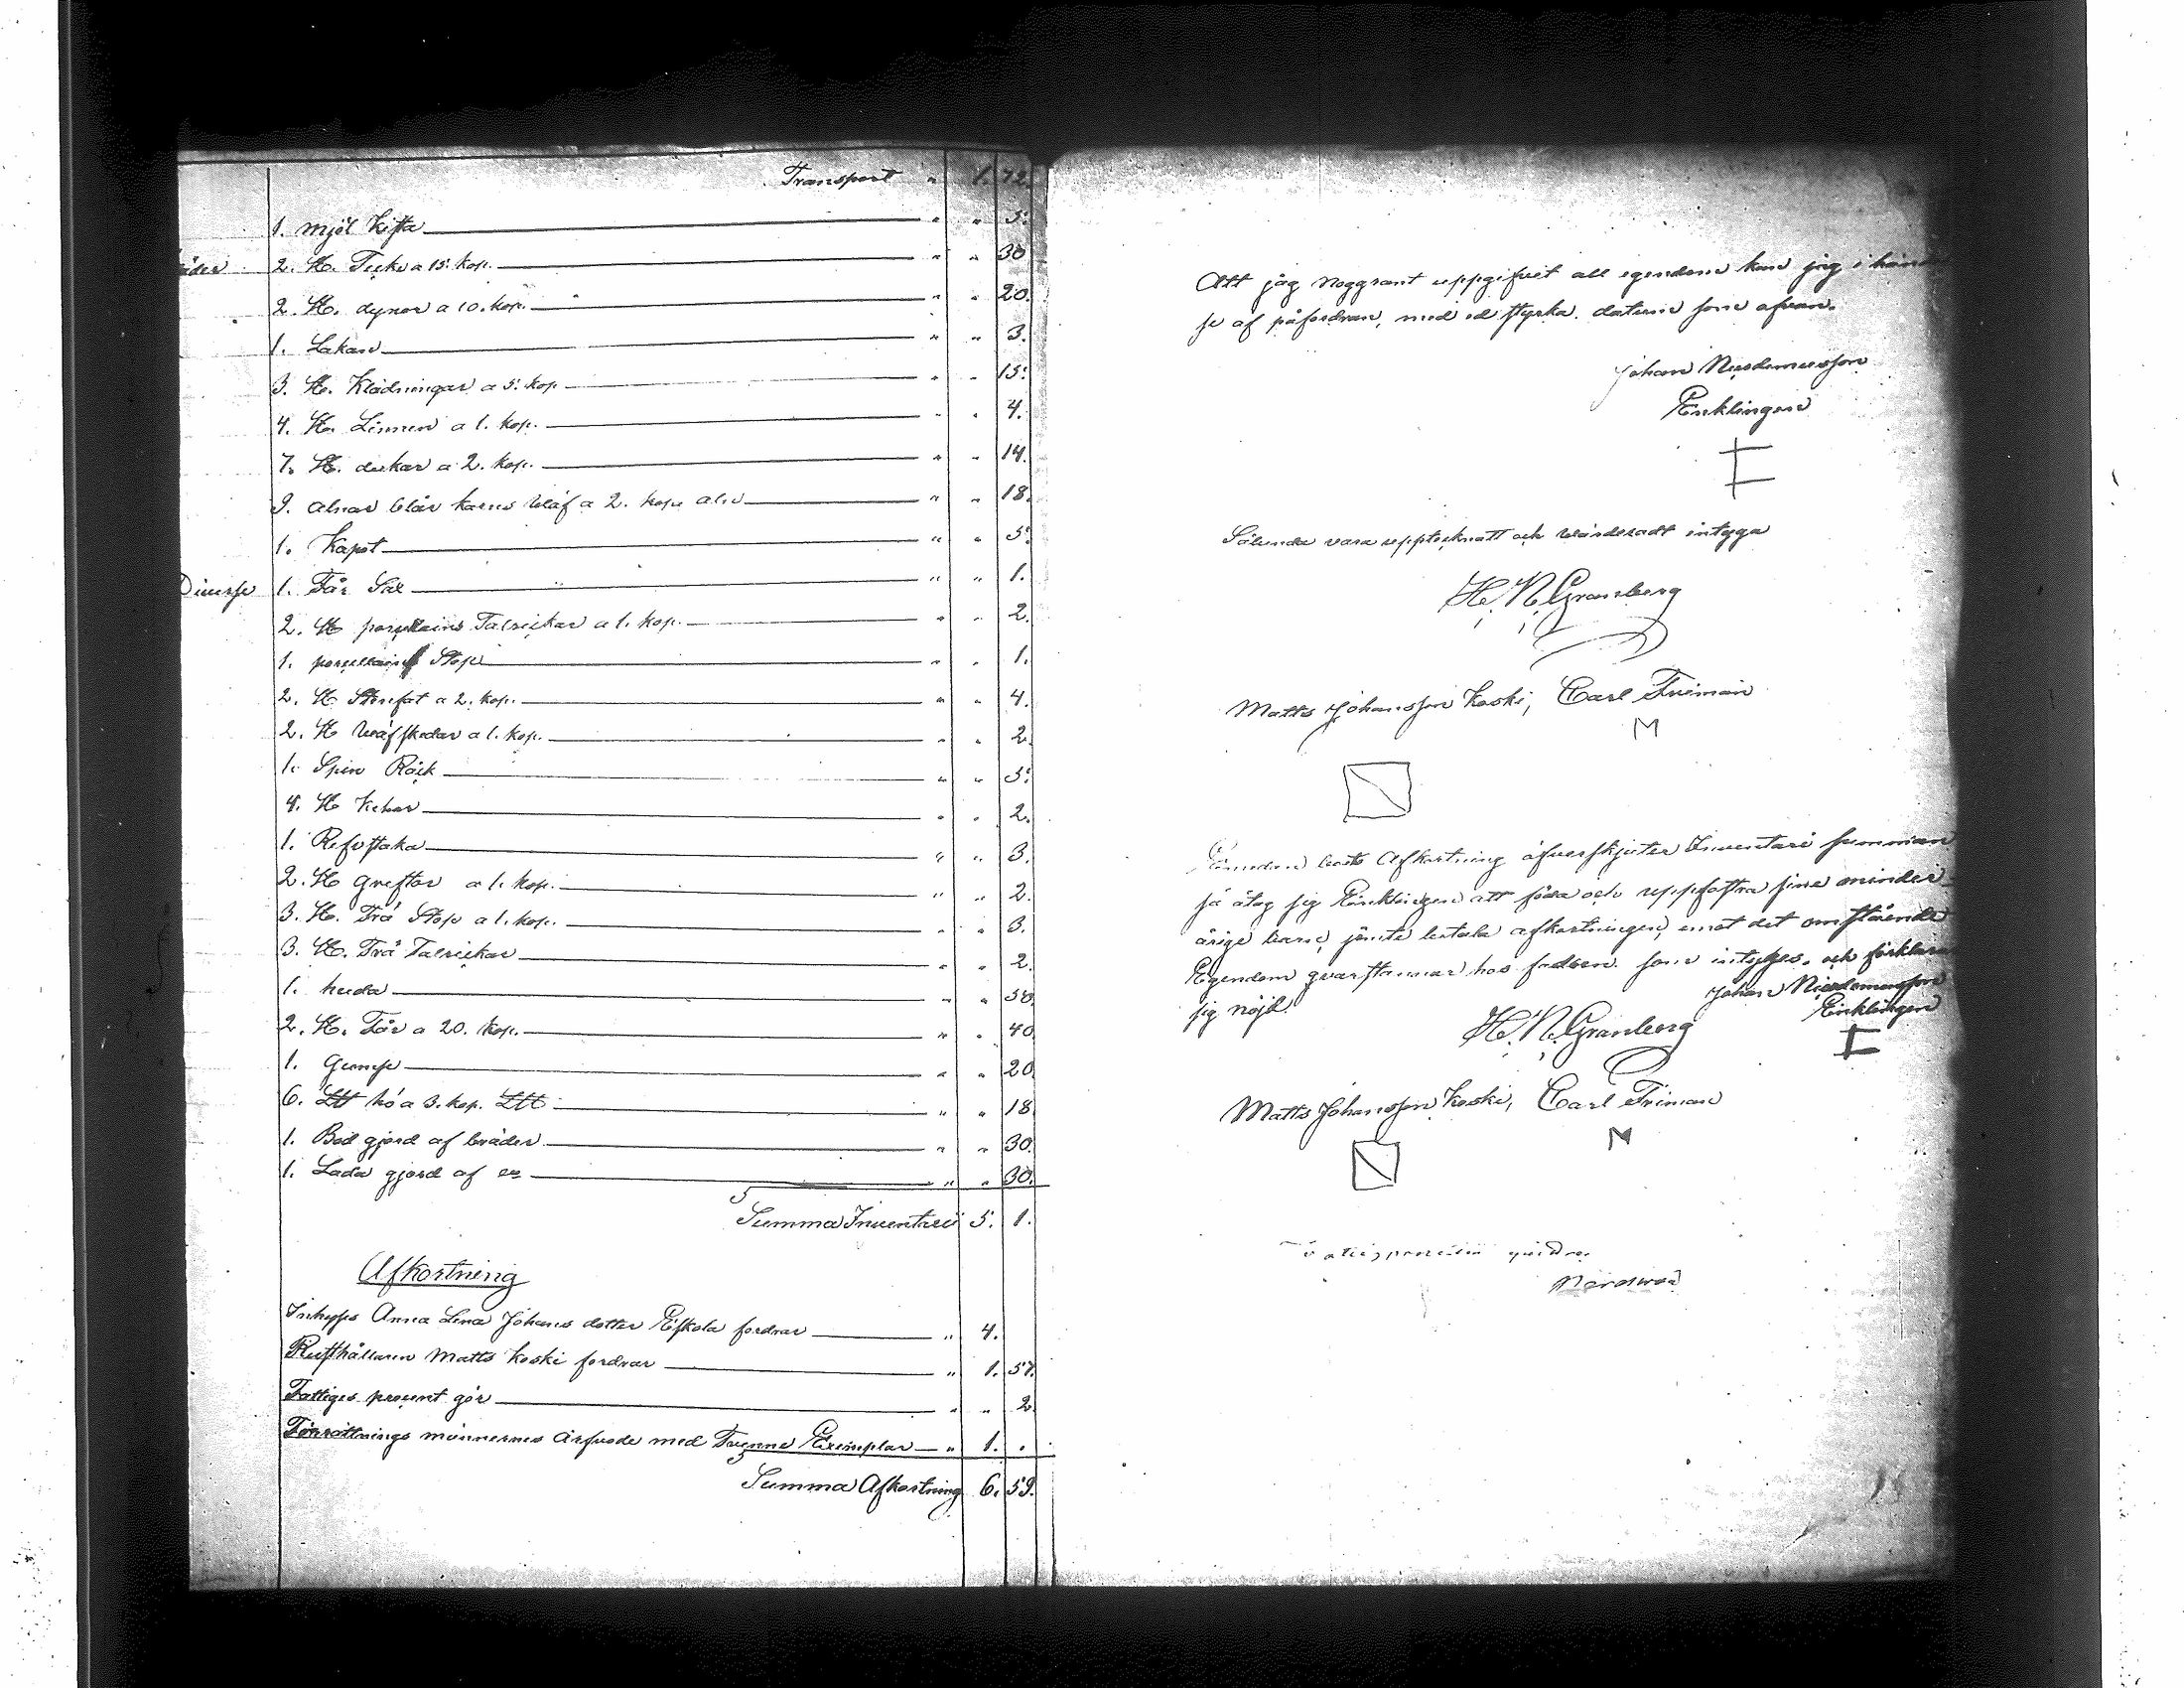 Transport " 1. 72.
1. mjöl Kista " " 5.
äder 2. St. Täcke a 15. kop. " " 30
2. St. dynor a 10. kop. " " 20.
1. Lakan " " 3.
3. St. Klädningar a 5. kop " " 15.
4. St. Linnen a 1. kop. " " 4.
7. St. dukar a 2. kop. " " 14.
9. alnar blår karns Wäf a 2. kop. aln " " 18.
1. Kapot " " 5.
Diverse 1. Får Säl " " 1.
2. St porcellains Talrickar a 1. kop. " " 2.
1. porcellains Stop " " 1.
2. St. Stenfat a 2. kop. " " 4.
2. St Wäfskedar a 1. kop. " " 2.
1. Spin Råck " " 5.
4. St " " 2.
1. " " 3.
2. St greftor a 1. kop. " " 2.
3. St. Trä Stop a 1. kop. " " 3.
3. St. Trä Talrickar " " 2.
1. " " 50.
2. St. Får a 20. kop. " " 40.
1. Gumse " " 20.
6. Ltt hö a 3. kop. Ltt " " 18
1. Bod gjord af bräder " " 30.
1. Lada gjord af " " 30.
Summa Inventarii 5. 1.
Afkortning
Inhyses Anna Lena Johans dotter Eskola fordrar " 4.
Rusthållaren Matts Koski fordrar " 1. 57.
Fattiges procent gör " " 2
Förrättnings männernes Arfvode med Tvenne Exemplar " 1. .
Summa Afkortning 6. 59.
Att jag noggrant uppgifvit all egendom kan jag i händel
se af påfordran, med ed styrka. datum som ofvan.
Johan Nicodemusson
Enklingen
Sålunda vara upptecknatt och Wärderadt intyga
H. N. Granberg
Matts Johansson Koski, Carl Friman
M
Afkortning öfverskjuter Inventarii summan
så åtog sig Enklingen att föda och uppfostra sine minder
årige barn, jämte betala afkortningen, emot det omstående
Egendom qvarstannar hos fadren. som intyges. och förklara
sig nöjd. Johan Nicodemusson
Enklingen
H. N. Granberg
Matts Johansson Koski, Carl Friman
M